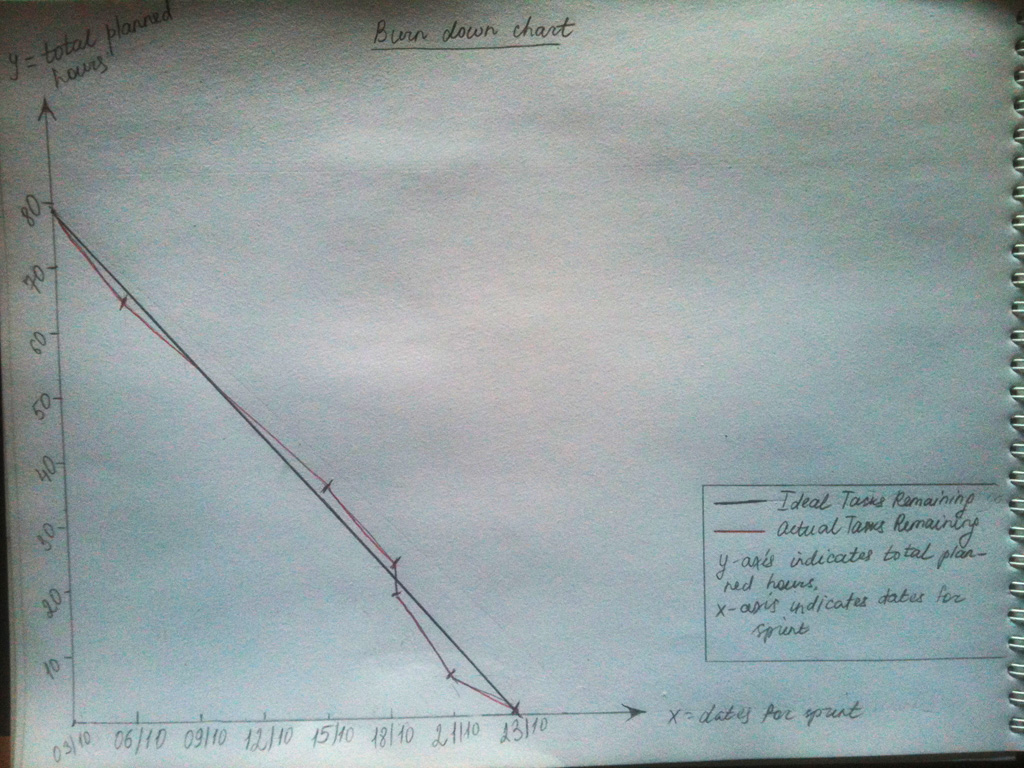 Burn down chart
y = total planned
hours
80
70
60
50
40
30
20
10
03/10 06/10 09/10 12/10 15/10 18/10 21/10 23/10
x = dates for sprint
Ideal Tasks Remaining
Actual Tasks Remaining
y-axis indicates total plan-
ned hours,
x-axis indicates dates for
sprint